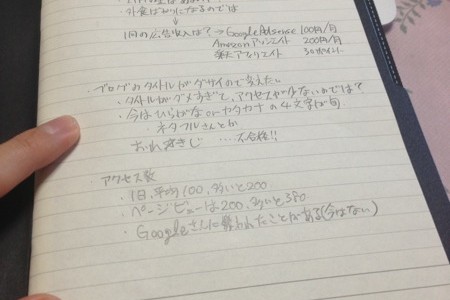 外食ばかりになるのでは
↓
1月の広告収入は?→Google Adsense 100円/月
Amazonアソシエイト 200円/月
楽天アフィリエイト 30ポイント
ブログのタイトルがダサイので考えたい
・タイトルがダメすぎて、アクセスが少ないのでは?
・今はひらがな or カタカナの4文字が旬
ネタフルさんとか
……不合格!!
アクセス数
・1日、平均100、多いと200
・ページビューは200、多いと380
・Googleさんに嫌われたことがある(今はない)